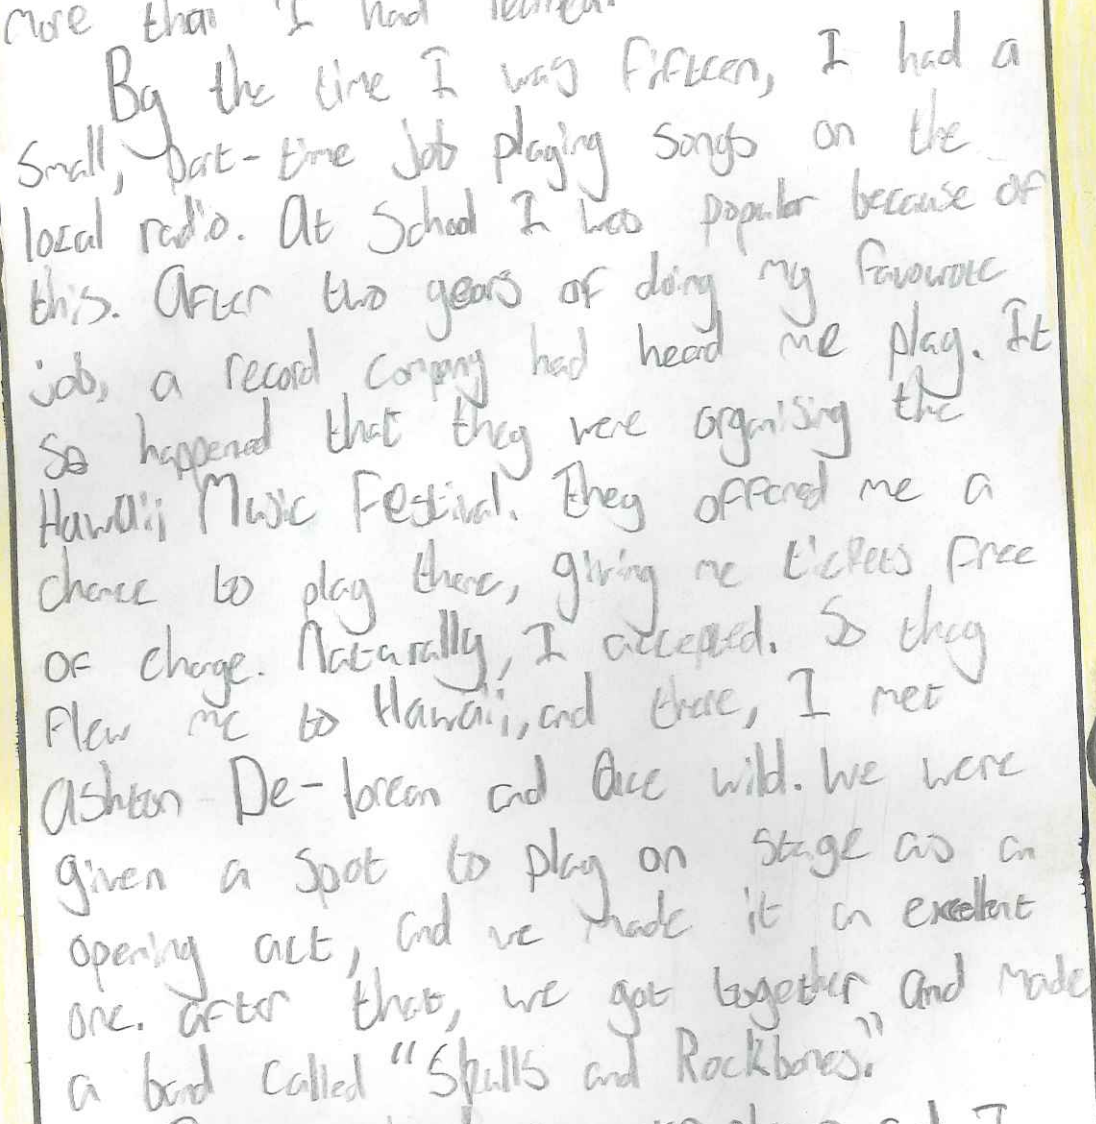 more than I had learned.
By the time I was fifteen, I had a
small, part-time job playing songs on the
local radio. At School I was popular because of
this. After two years of doing my favourote
job, a record company had heard me play. It
so happened that they were organising the
Hawaii Music Festival. They offered me a
chance to play there, giving me tickets free
of charge. Naturally, I accepted. So they
flew me to Hawaii, and there, I met
Ashton De-lorean and Ace wild. We were
given a spot to play on stage as an
opening act, and we made it an excellent
one. After that, we got together and made
a band called "Skulls and Rockbones."
and I